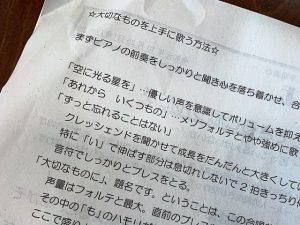 ☆大切なものを上手に歌う方法☆
まずピアノの前奏をしっかりと聞き心を落ち着かせ、合
「空に光る星を」…優しい声を意識してボリュームを抑え
「あれから いくつもの」…メゾフォルテとやや強めに歌
「ずっと忘れることはない」
クレッシェンドを聞かせて成長をだんだんと大きくして
特に「い」で伸ばす部分は息切れしないで2拍きっちり伸
音符でしっかりとブレスをとる。
「大切なものに」、題名です。ということは、この合唱
声量はフォルテと最大。直前のブレス
その中の「も」のハモリが
ここで盛り